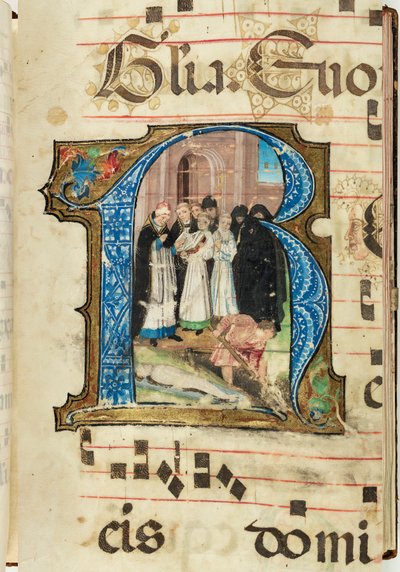 Glia. Euo
R e
eis domi